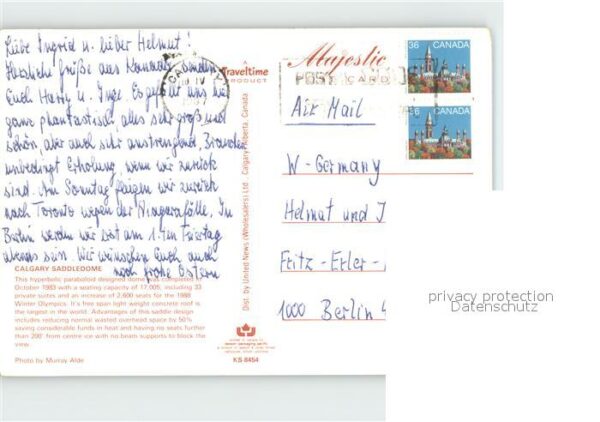 Liebe Ingrid u. lieber Helmut!
Herzliche Grüße aus Kanada senden
Euch Harry u. Inge. Es gefällt uns hier
ganz phantastisch, alles sehr groß und
schön, aber auch sehr anstrengend. Brauchen
unbedingt Erholung, wenn wir zurück
sind. Am Sonntag fliegen wir zurück
nach Toronto wegen der Niagarafälle. In
Berlin werden wir erst am 1.ten Feiertag
abends sein. Wir wünschen Euch auch
noch frohe Ostern
CALGARY SADDLEDOME
This hyperbolic paraboloid designed dome was completed in
October 1983 with a seating capacity of 17,005, including 33
private suites and an increase of 2,600 seats for the 1988
Winter Olympics. It's free span light weight concrete roof is
the largest in the world. Advantages of this saddle design
includes reducing normal wasted overhead space by 50%
saving considerable funds in heat and having no seats further
than 200' from centre ice with no beam supports to block the
view.
Photo by Murray Alde
A
Traveltime
PRODUCT
Dist. by United News (Wholesalers) Ltd. Calgary Alberta, Canada
KS 8454
Majestic
POST CARD
36 CANADA
36 CANADA
CALGARY
Air Mail
W-Germany
Helmut und I
Fritz-Erler-
1000 Berlin 4
privacy protection
Datenschutz